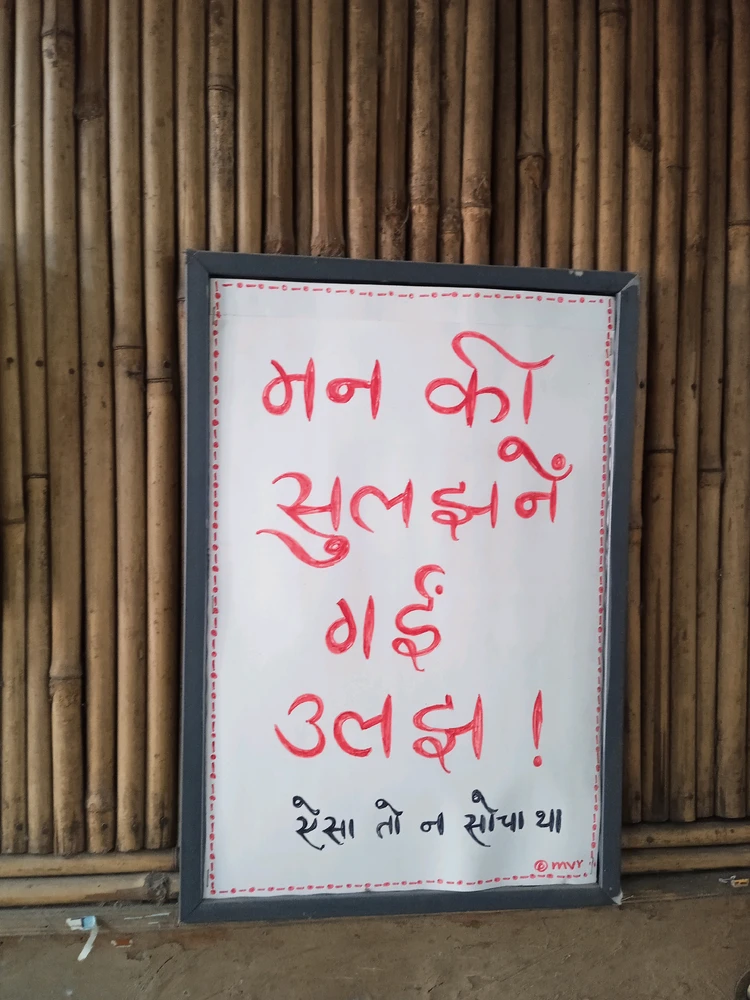 मन की
सुलझनें
गईं
उलझ !
ऐसा तो न सोचा था
© mvr